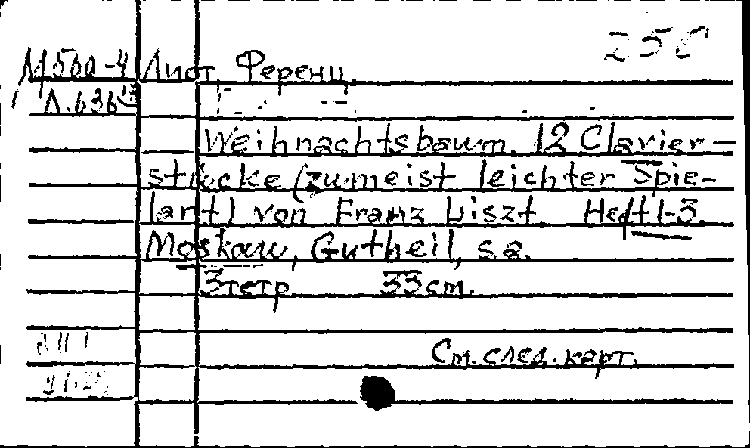 25С
М560-4 Лист, Ференц.
Л.636
Weihnachtsbaum. 12 Clavier-
stücke (zumeist leichter Spie-
lart) von Franz Liszt. Heft 1-3.
Moskau, Gutheil, s.a.
3тетр. 33cm.
См. след. карт.